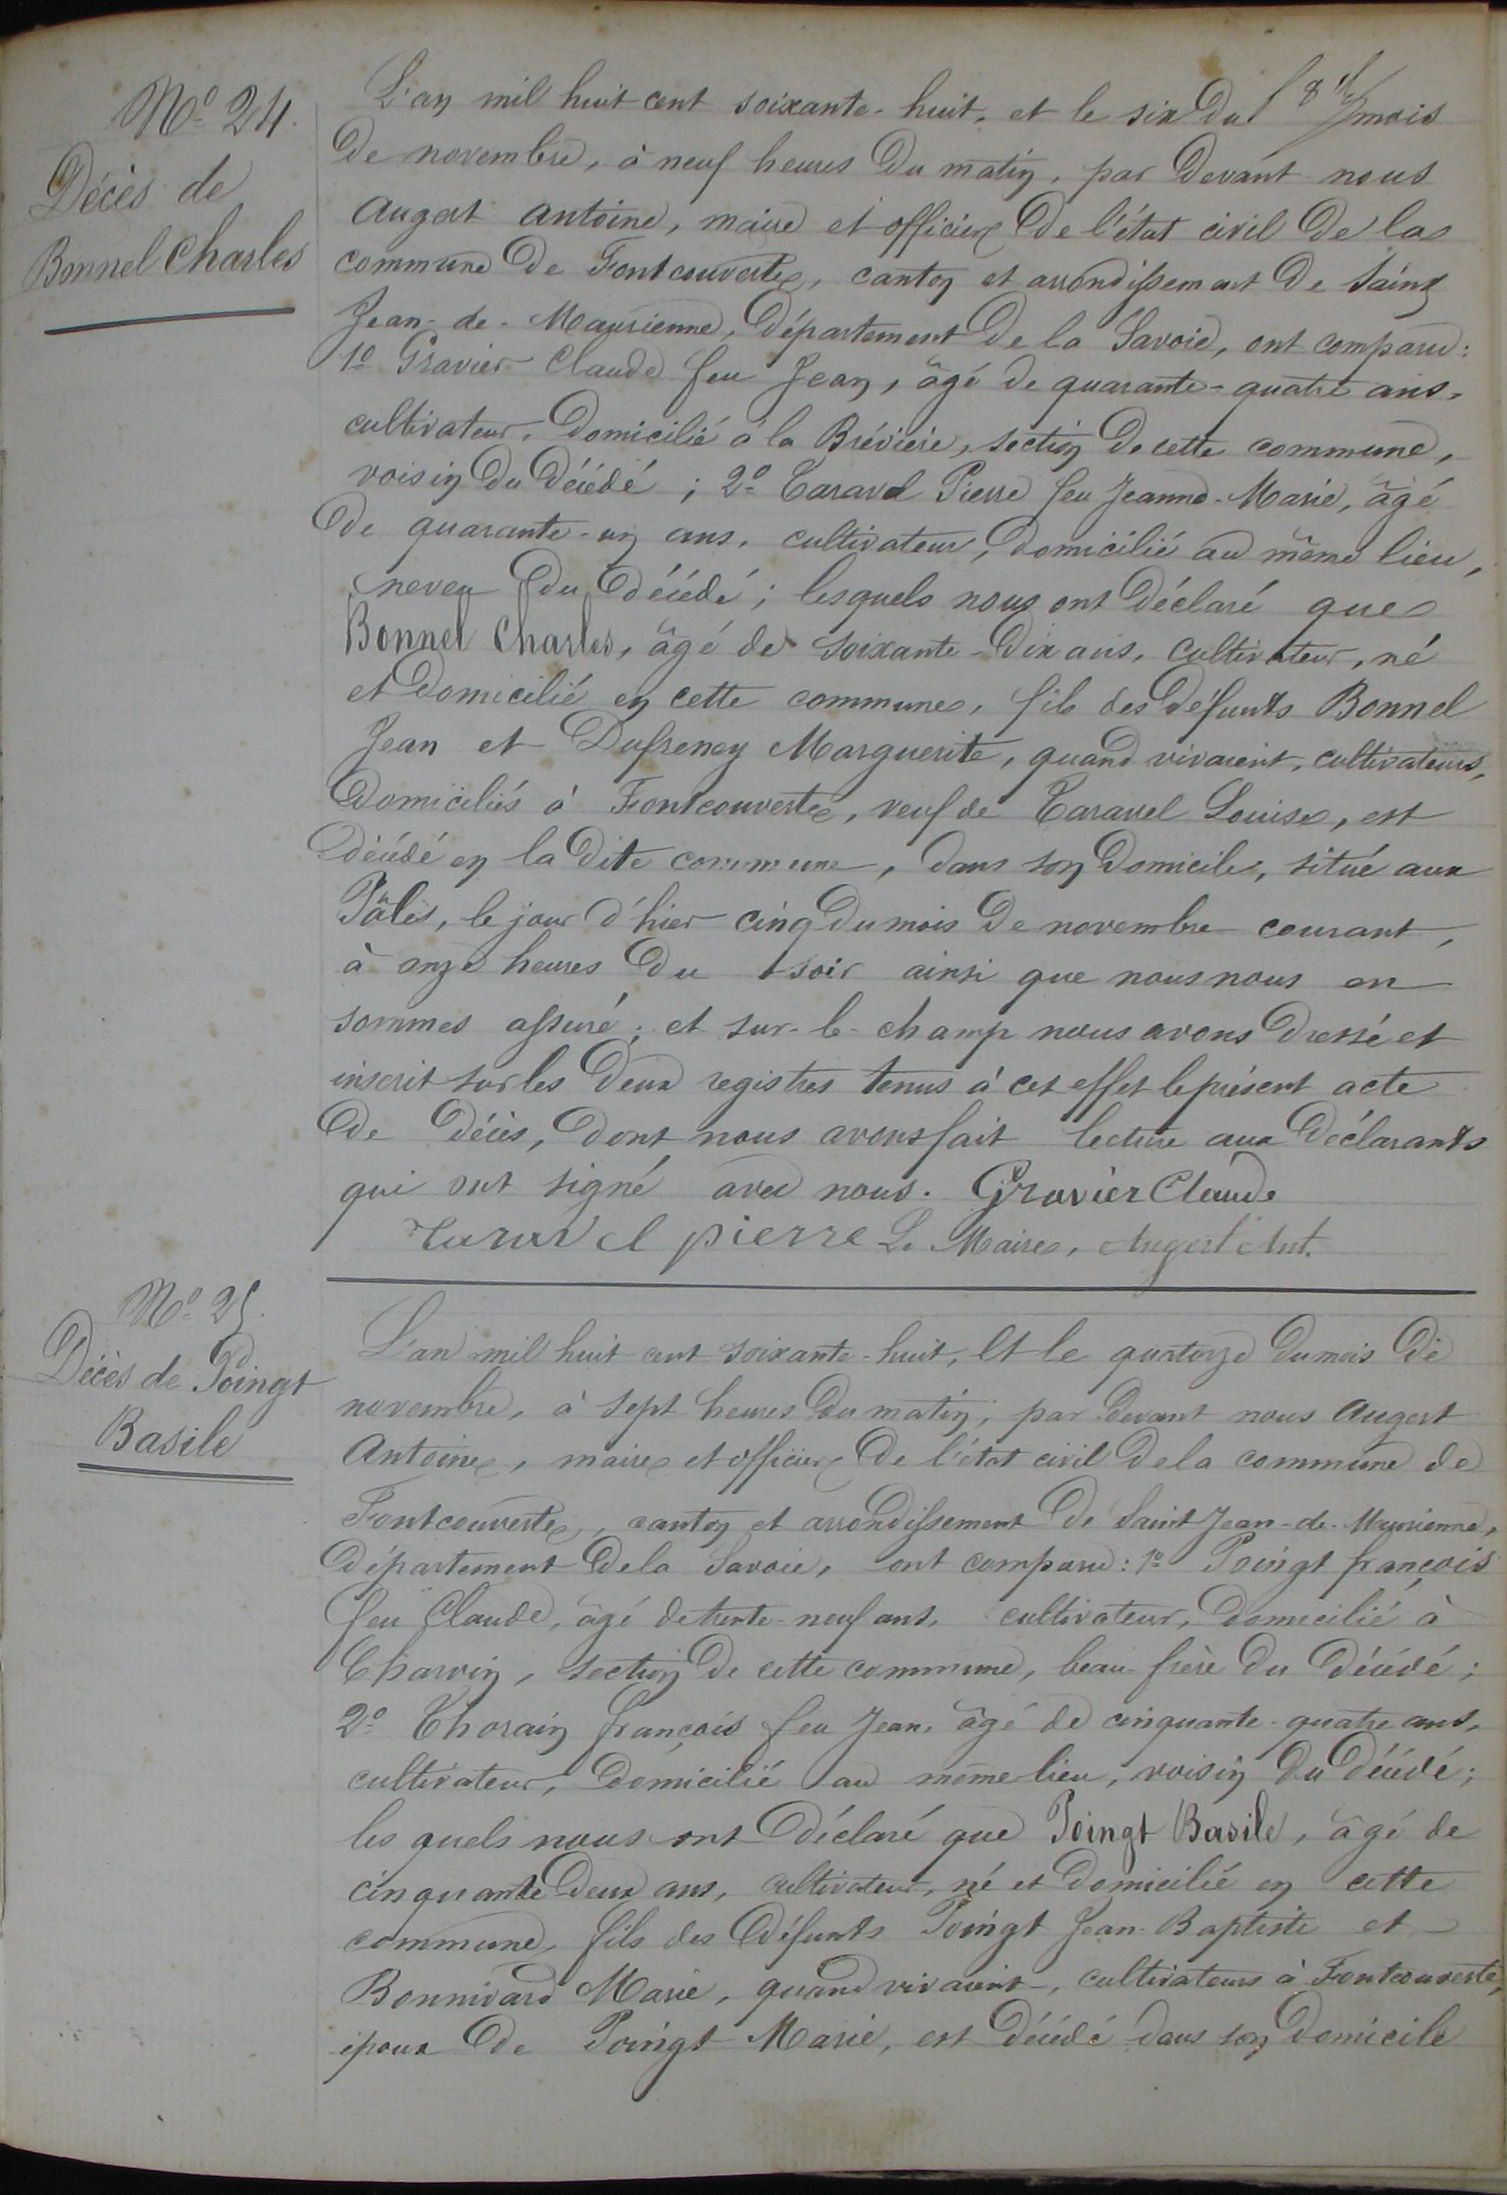 N° 24.
Décès de
Bonnel Charles
L'an mil huit cent soixante-huit, et le six du mois
de novembre, à neuf heures du matin, par devant nous
Augert Antoine, maire et officier de l'état civil de la
commune de Fontcouverte, canton et arrondissement de Saint
Jean-de-Maurienne, département de la Savoie, ont comparu:
1° Gravier Claude feu Jean, âgé de quarante-quatre ans,
cultivateur, domicilié à la Brévière, section de cette commune,
voisin du décédé ; 2° Taravel Pierre feu Jeanne-Marie, âgé
de quarante-un ans, cultivateur, domicilié au même lieu,
neveu du décédé ; lesquels nous ont déclaré que
Bonnel Charles, âgé de soixante-dix ans, cultivateur, né
et domicilié en cette commune, fils des défunts Bonnel
Jean et Dufreney Marguerite, quand vivaient, cultivateurs,
domiciliés à Fontcouverte, veuf de Taravel Louise, est
décédé en la dite commune, dans son domicile, situé aux
le jour d'hier cinq du mois de novembre courant,
à onze heures du soir ainsi que nous nous en
sommes assuré ; et sur-le-champ nous avons dressé et
inscrit sur les deux registres tenus à cet effet le présent acte
de décès, dont nous avons fait lecture aux déclarants
qui ont signé avec nous. Gravier Claude
Taravel pierre Le Maire, Augert Ant.
N° 25.
Décès de Poingt
Basile
L'an mil huit cent soixante-huit, et le quatorze du mois de
novembre, à sept heures du matin, par devant nous Augert
Antoine, maire et officier de l'état civil de la commune de
Fontcouverte, canton et arrondissement de Saint Jean-de-Maurienne,
département de la Savoie, ont comparu : 1° Poingt françois
feu Claude, âgé de trente-neuf ans, cultivateur, domicilié à
Charvin, section de cette commune, beau-frère du décédé ;
2° Thorain françois feu Jean, âgé de cinquante-quatre ans,
cultivateur, domicilié au même lieu, voisin du décédé ;
les quels nous ont déclaré que Poingt Basile, âgé de
cinquante deux ans, cultivateur, né et domicilié en cette
commune, fils des défunts Poingt Jean-Baptiste et
Bonnivard Marie, quand vivaient, cultivateurs à Fontcouverte,
époux de Poingt Marie, est décédé dans son domicile